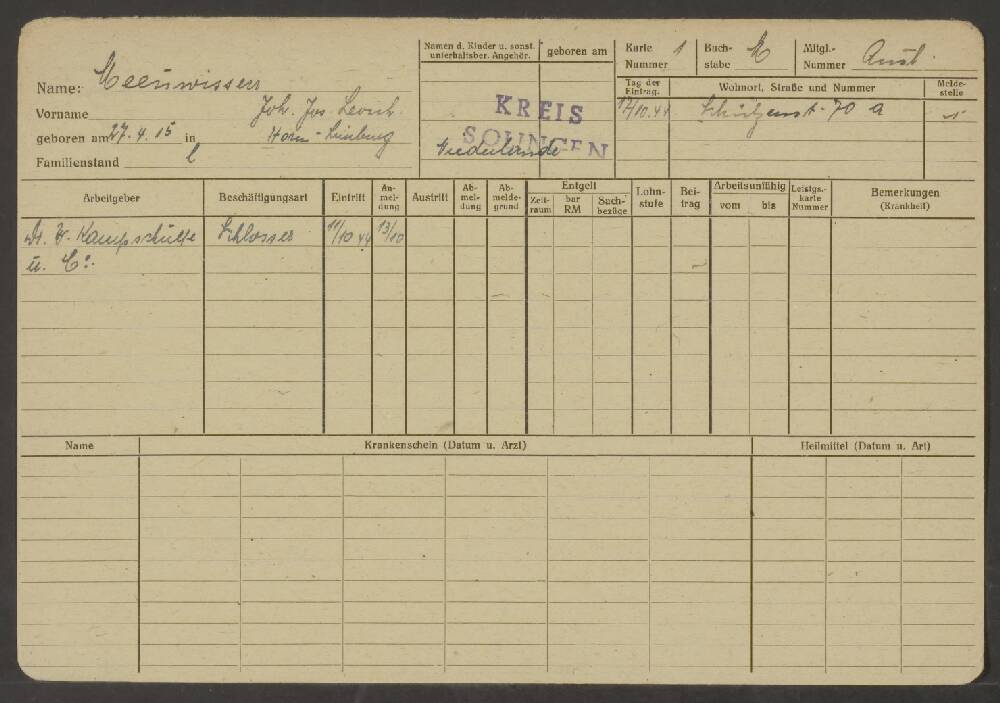 Name: Meeuwissen
Vorname Joh. Jos. Leonh.
geboren am 27.4.15 in Horn-Limburg
Familienstand l
Namen d. Kinder u. sonst. unterhaltsber. Angehör.
geboren am
KREIS
SOLINGEN
Niederlande
Karte Nummer 1
Buchstabe M
Mitgl.-Nummer Ausl.
Tag der Eintrag.
Wohnort, Straße und Nummer
Meldestelle
17/10.44 Schützenstr. 70 a
Arbeitgeber
Beschäftigungsart
Eintritt
Anmeldung
Austritt
Abmeldung
Abmeldegrund
Entgelt
Zeitraum
bar RM
Sachbezüge
Lohnstufe
Beitrag
Arbeitsunfähig
vom
bis
Leistgs.-karte Nummer
Bemerkungen
(Krankheit)
Dr. W. Kampschulte Schlosser 11/10 44 13/10
u. Co.
Name
Krankenschein (Datum u. Arzt)
Heilmittel (Datum u. Art)